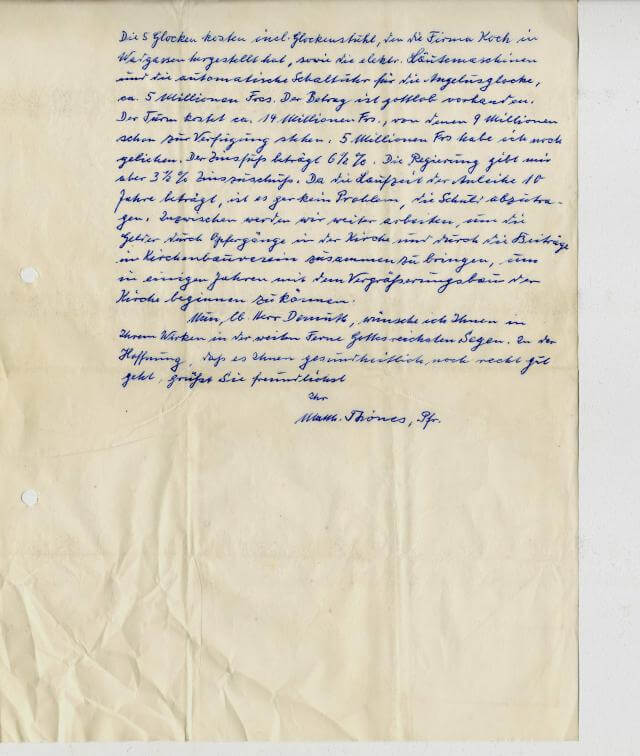 Die 5 Glocken kosten incl. Glockenstuhl, den die Firma Koch in
Wadgassen hergestellt hat, sowie die elektr. Läutemaschinen
und die automatische Schaltuhr für die Angelusglocke,
ca. 5 Millionen Frcs. Der Betrag ist gottlob vorhanden.
Der Turm kostet ca. 14 Millionen Frs., von denen 9 Millionen
schon zur Verfügung stehen. 5 Millionen Frs habe ich noch
geliehen. Der Zinsfuß beträgt 6½ %. Die Regierung gibt mir
aber 3½ % Zinszuschuß. Da die Laufzeit der Anleihe 10
Jahre beträgt, ist es gar kein Problem, die Schuld abzutra-
gen. Inzwischen werden wir weiter arbeiten, um die
Gelder durch Opfergänge in der Kirche und durch die Beiträge
im Kirchenbauverein zusammen zu bringen, um
in einigen Jahren mit dem Vergrößerungsbau der
Kirche beginnen zu können.
Nun, lb. Herr Demuth, wünsche ich Ihnen in
Ihrem Wirken in der weiten Ferne Gottes reichsten Segen. In der
Hoffnung, daß es Ihnen gesundheitlich noch recht gut
geht, grüßt Sie freundlichst
Ihr
Matth. Thönes, Pfr.